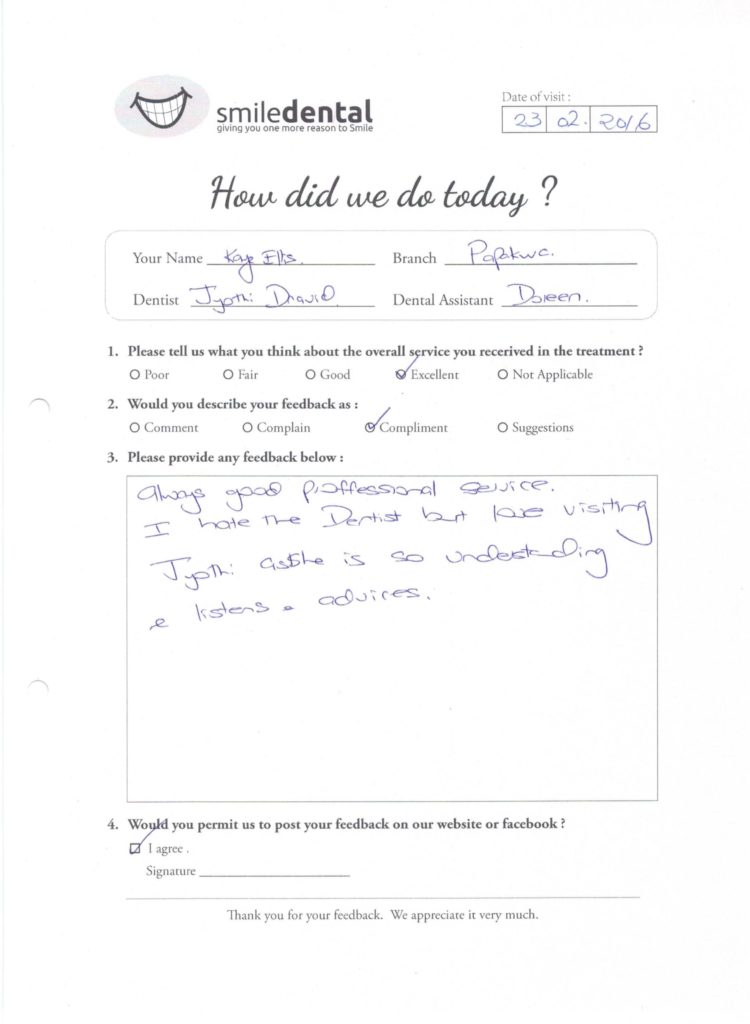 smiledental
giving you one more reason to Smile
Date of visit :
23 02. 2016
How did we do today ?
Your Name Kaye Ellis. Branch Papakura.
Dentist Jyothi Dravid Dental Assistant Doreen.
1. Please tell us what you think about the overall service you recerived in the treatment ?
Poor Fair Good Excellent Not Applicable
2. Would you describe your feedback as :
Comment Complain Compliment Suggestions
3. Please provide any feedback below :
Always good proffessional service.
I hate the Dentist but love visiting
Jyothi as she is so understanding
& listens & advices.
4. Would you permit us to post your feedback on our website or facebook ?
I agree .
Signature
Thank you for your feedback. We appreciate it very much.